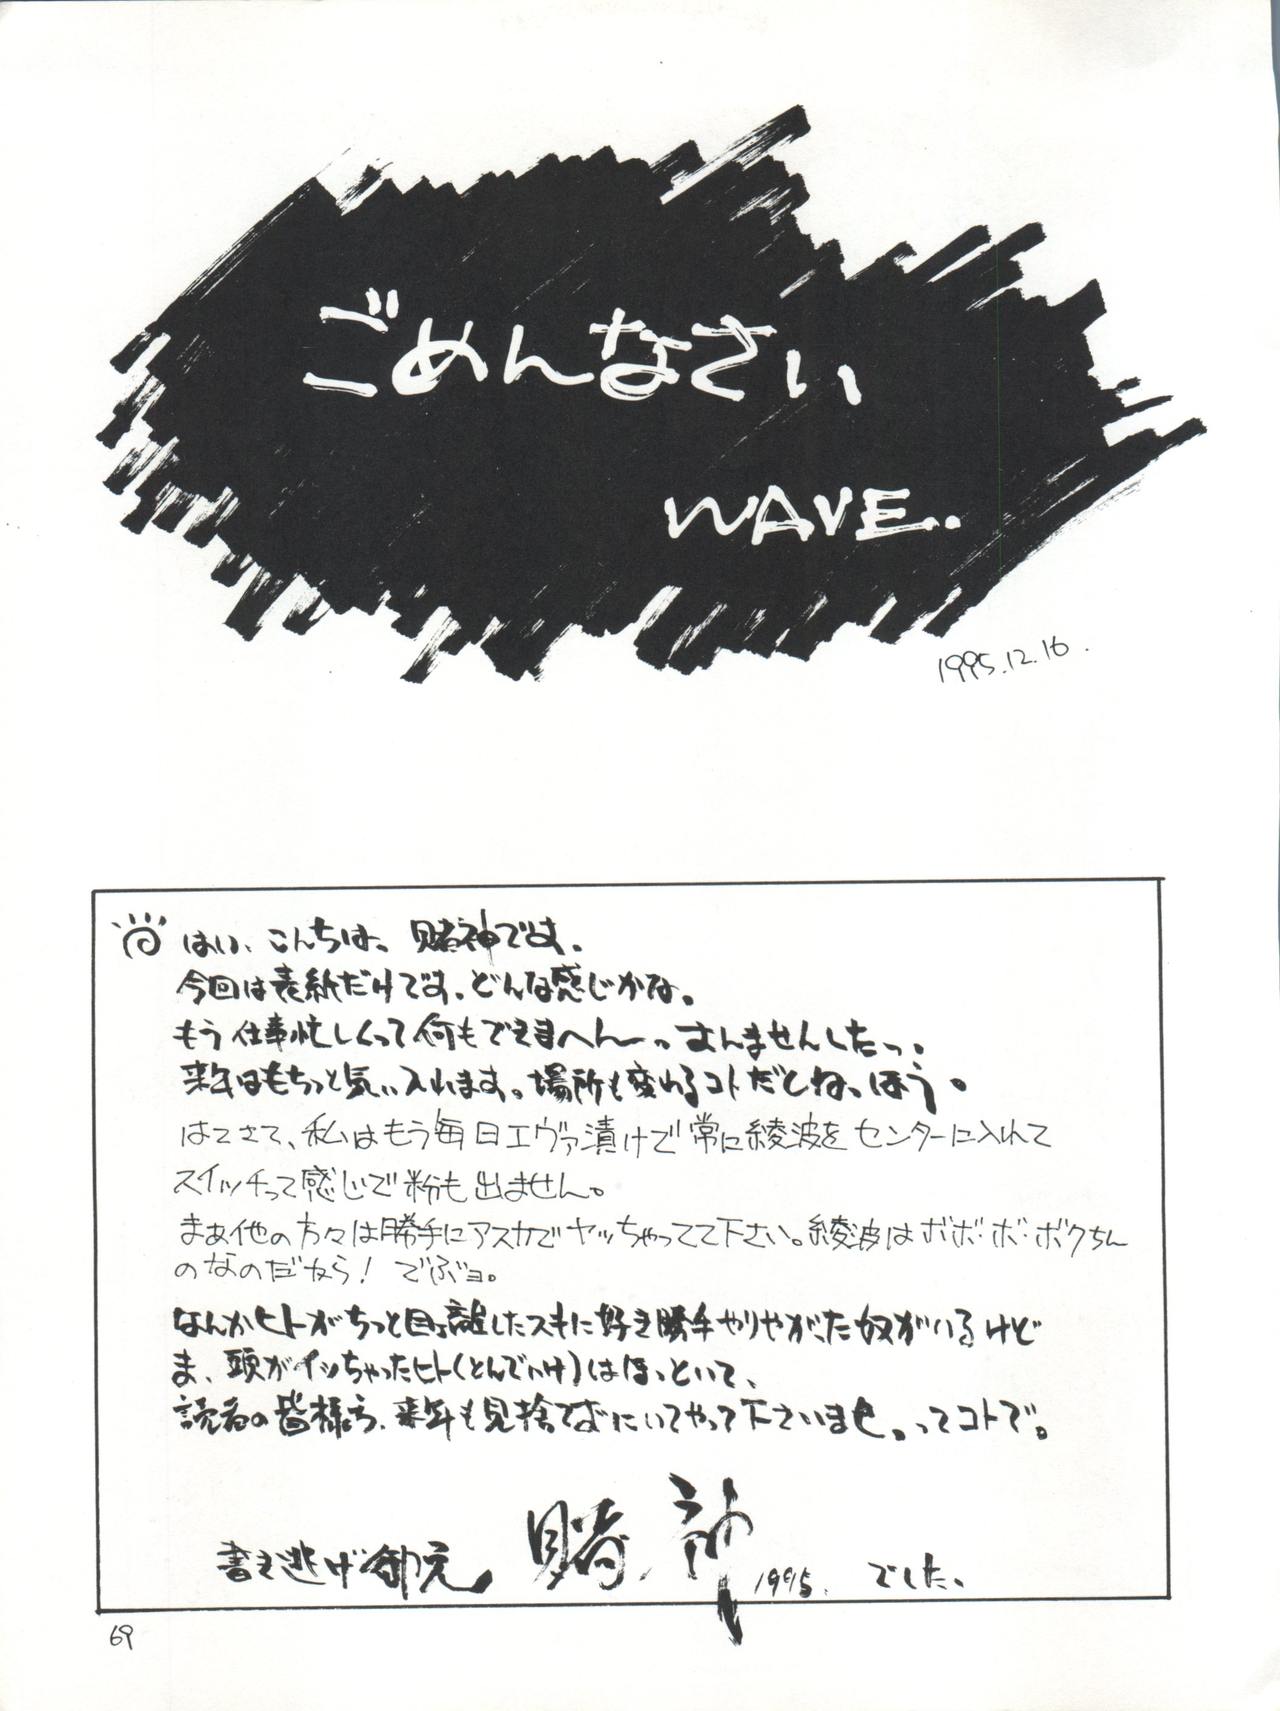 ごめんなさい
WAVE.
1995.12.16.
はい、こんちは、賭神です。
今回は表紙だけです。どんな感じかな。
もう仕事忙しくって何もできまへんーっすんませんしたっ。
来年はもちっと気ぃ入れます。場所も変わるコトだしねっほう。
はてさて、私はもう毎日エヴァ漬けで常に綾波をセンターに入れて
スイッチって感じで粉も出ません。
まぁ他の方々は勝手にアスカでヤッちゃってて下さい。綾波はボボ・ボ・ボクちん
のなのだから! でぶョ。
なんかヒトがちっと目ぇ離したスキに好き勝手やりやがった奴がいるけど
ま、頭がイッちゃったヒト(とんでいけ)はほっといて、
読者の皆様方、来年も見捨てずにいてやって下さいませ。ってコトで。
書き逃げ御免
賭神
1995.
でした。
69